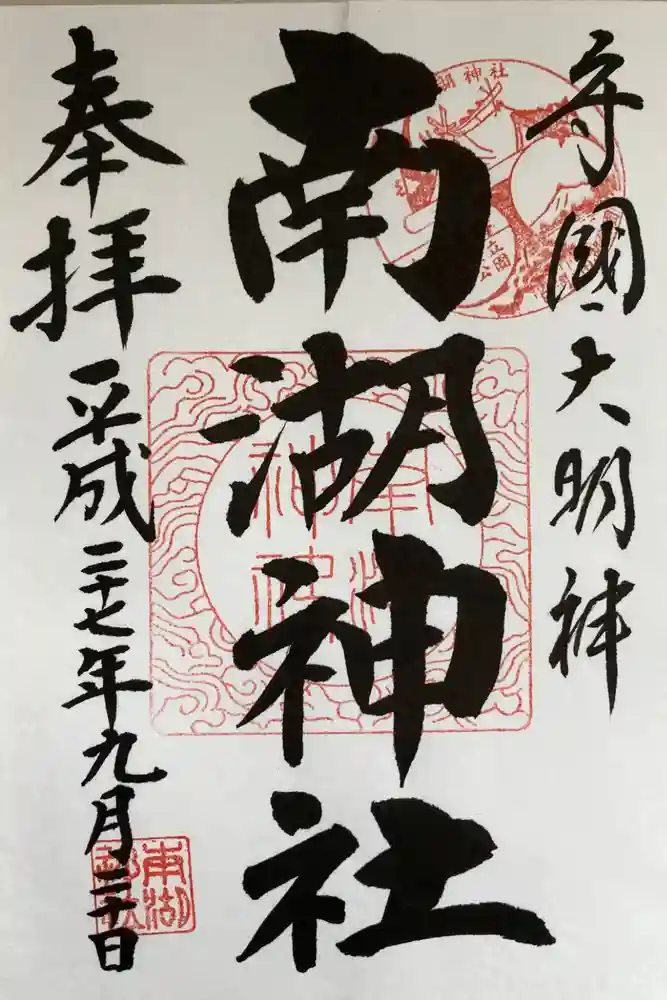 守國大明神
南湖神社
奉拝
平成二十七年九月二十日
湖神社
南湖
神社
南湖